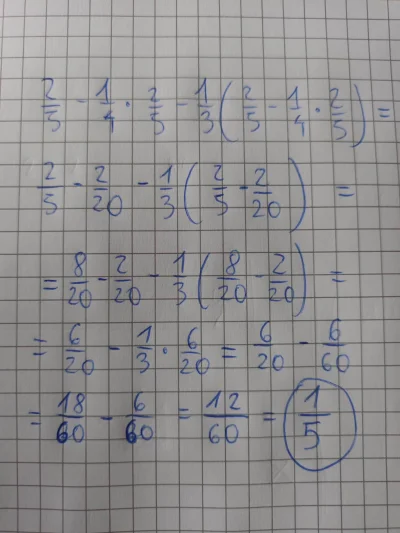 2/5 - 1/4 · 2/5 - 1/3 (2/5 - 1/4 · 2/5) =
2/5 - 2/20 - 1/3 (2/5 - 2/20) =
= 8/20 - 2/20 - 1/3 (8/20 - 2/20) =
= 6/20 - 1/3 · 6/20 = 6/20 - 6/60
= 18/60 - 6/60 = 12/60 = 1/5